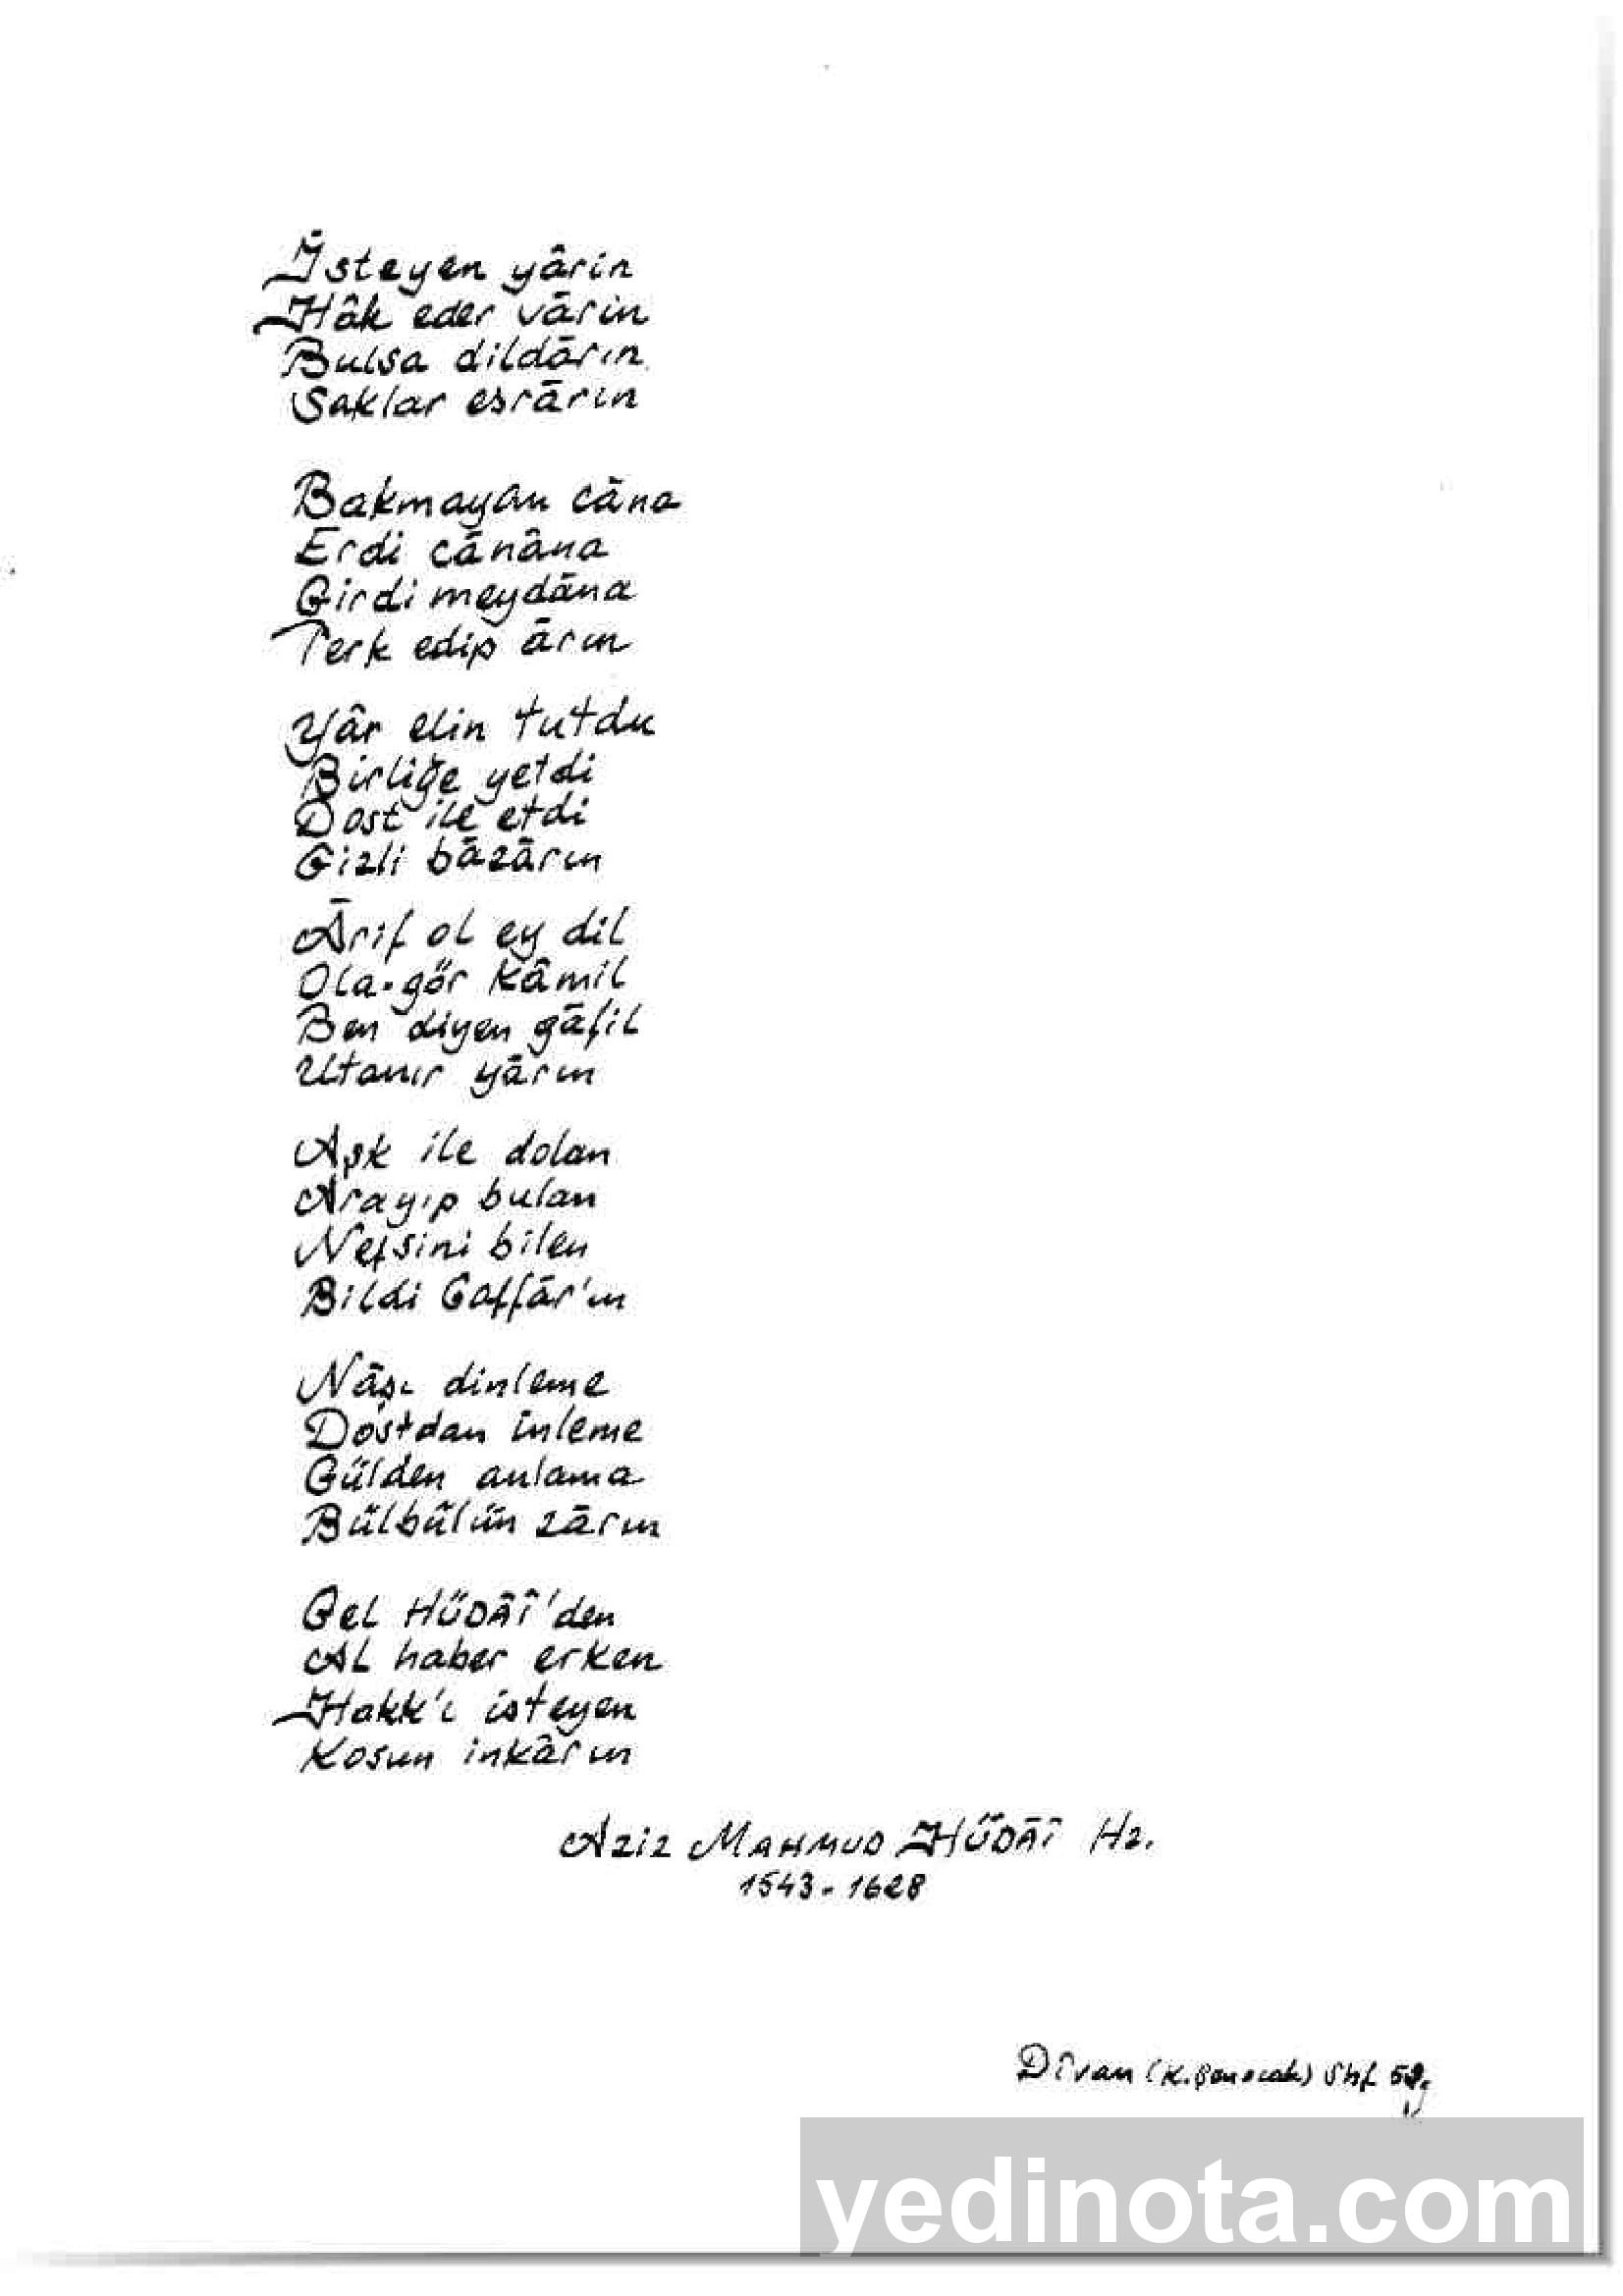 İsteyen yârin
Hâk eder vārin
Bulsa dildārın
Saklar esrārın
Bakmayan cāna
Erdi cānâna
Girdi meydāna
Terk edip ārın
Yâr elin tutdu
Birliğe yetdi
Dost ile etdi
Gizli bāzārın
Ārif ol ey dil
Ola-gör kâmil
Ben diyen gāfil
Utanır yārın
Aşk ile dolan
Arayıp bulan
Nefsini bilen
Bildi Gaffār'ın
Nāşı dinleme
Dostdan inleme
Gülden anlama
Bülbülün zārın
Gel HÜDÂÎ'den
Al haber erken
Hakk'ı isteyen
Kosun inkârın
Aziz MAHMUD HÜDÂÎ Hz.
1543-1628
Dîvan (K. Şenocak) Shf
yedinota.com